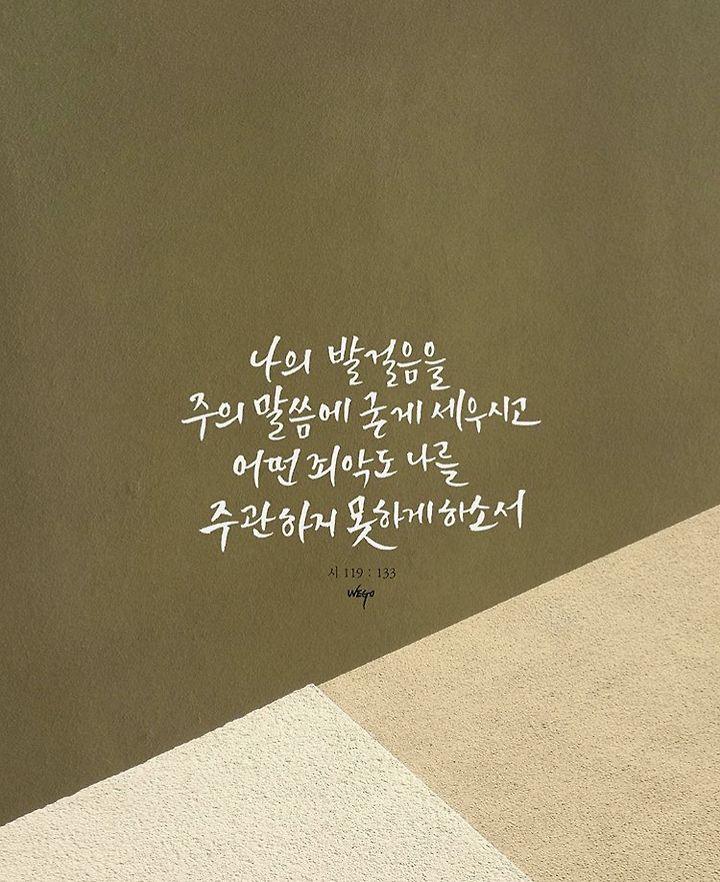 나의 발걸음을
주의 말씀에 굳게 세우시고
어떤 죄악도 나를
주관하지 못하게 하소서
시 119 : 133
WEGO